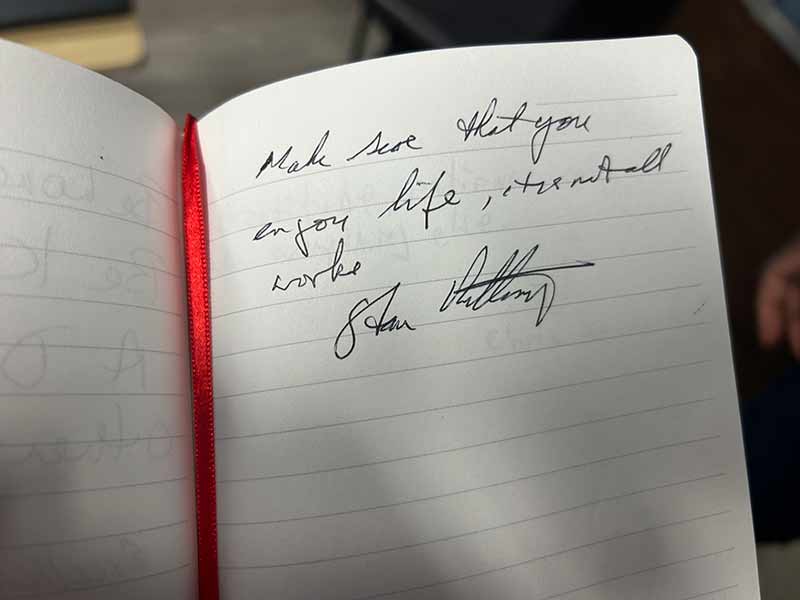 Make sure that you
enjoy life, it is not all
works
Stan